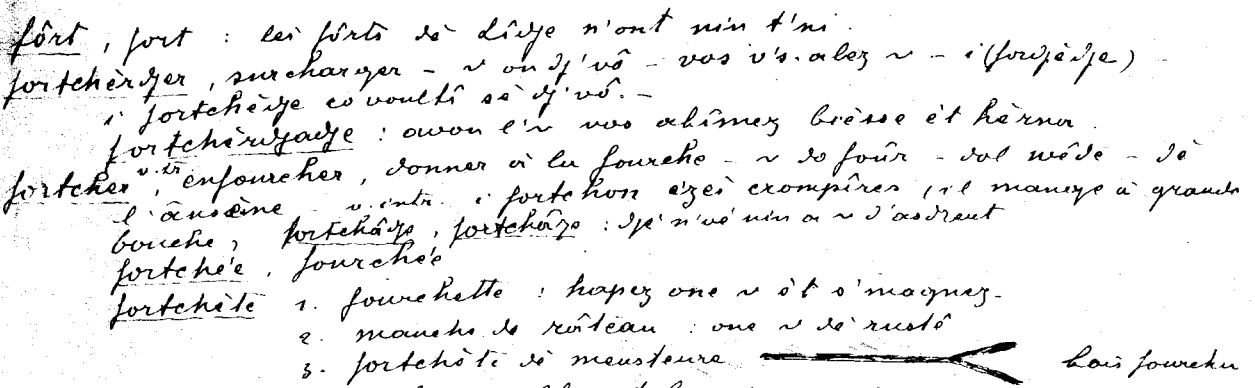 fôrt, fort : les fôrts dè Lîdje n'ont nin t'ni.
fortchèrdjer, surcharger – v on dj'vô – vos v's. alez v – i (fordjèdje)
i fortchèdje co voultî sè dj'vô. –
fortchèrdjadje : avou l'v vos abîmez brèsse èt hèrna
fortcher v.tr, enfourcher, donner à la fourche – v do foûr – dol wêde – dè
l'ânsène – v. intr. i fortchon èzès crompîres, il mange à grande
bouche, fortchâje, fortchôje : djè n'vé nin a v d'asdreut
fortchée, fourchée
fortchète 1. fourchette : hapez one v èt s'magnez –
2. manche de râteau : one v dè rustê
3. fortchète dè meusteure bois fourchu